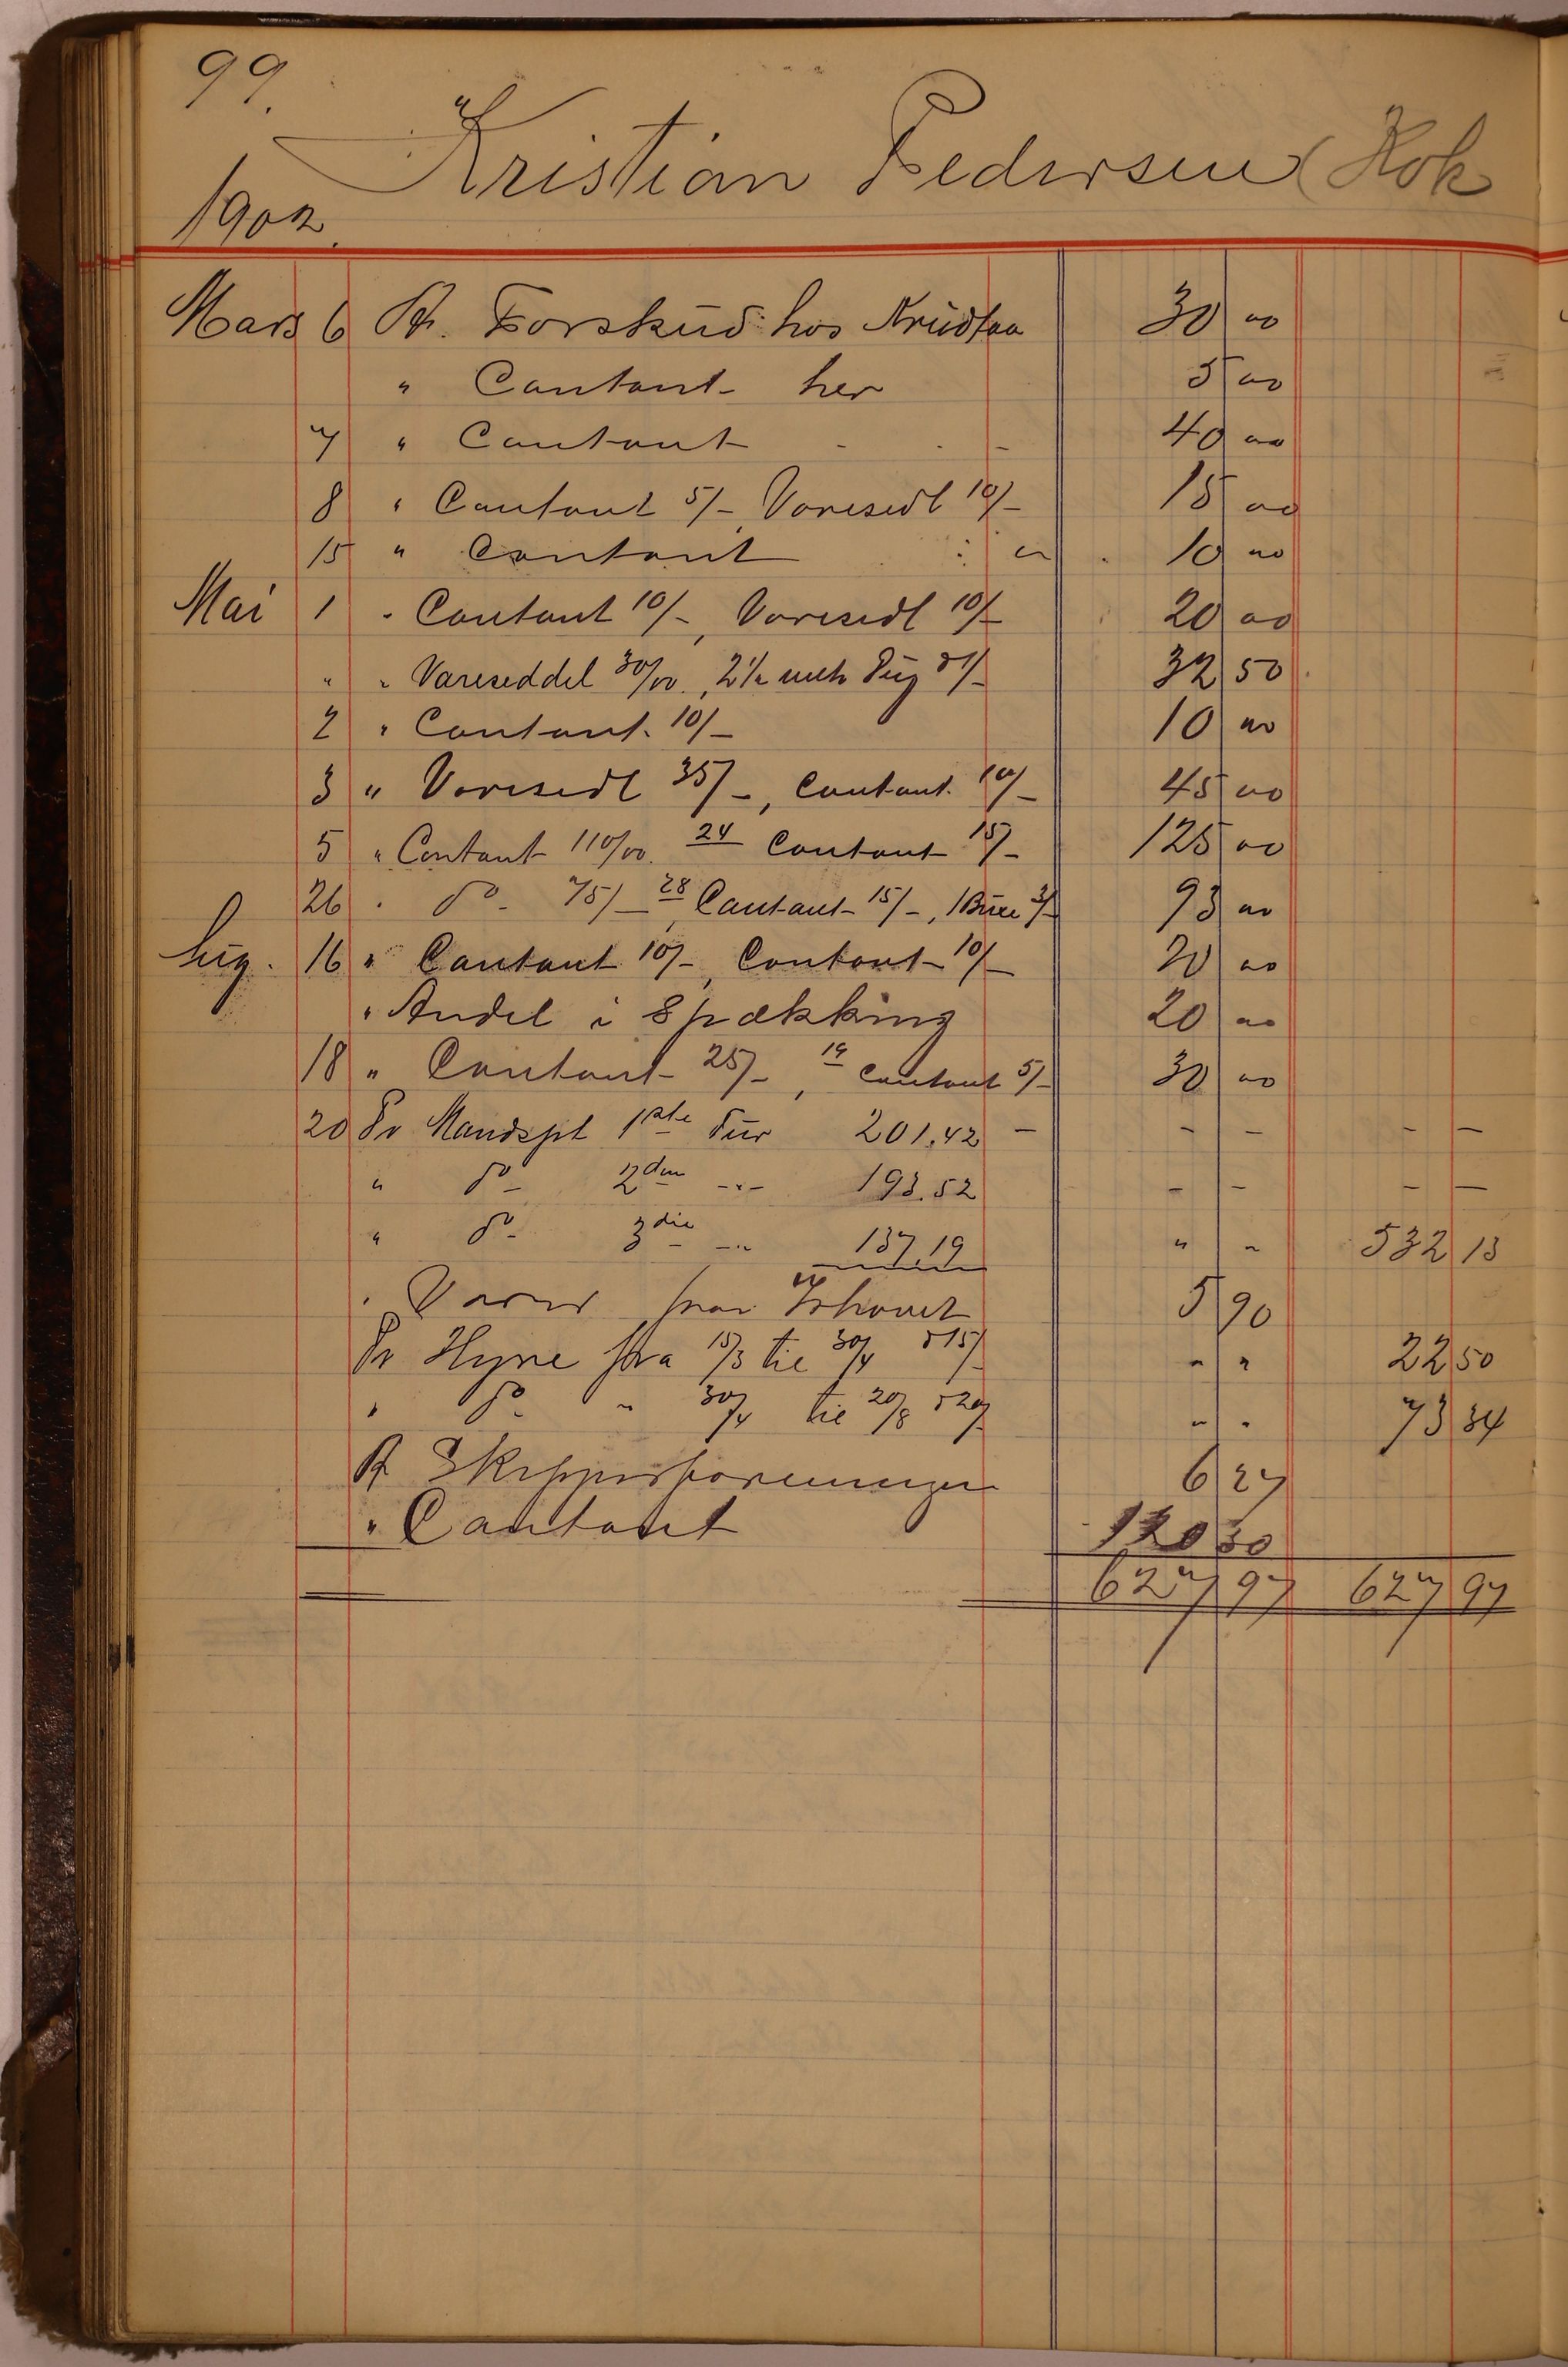 99.
Kristian Pedersen (Kok
1902.
Mars 6 At. Forskud hos 30 00
" Contant her 5 00
7 " Contant - - - 40 00
8 " Contant 5/-, Varesedl 10/- 15 00
15 " Contant : " 10 00
Mai 1 " Contant 10/-, Varesedl 10/- 20 00
" " Vareseddel 30/00., 2½ met Tüg à 1/- 32 50
2 " Contant. 10/- 10 00
3 " Varesedl 35/-, Contant. 10/- 45 00
5 " Contant 110/00. 24 Contant 15/- 125 00
26 " do- 75/- 28 Contant 15/-, 1 Buxe 3/- 93 00
Aug. 16 " Contant 10/-, Contant 10/- 20 00
" Andel i Spækking 20 00
18 " Contant 25/-, 19 Contant 5/- 30 00
20 Pr Mandspt 1ste Tur 201.42 - - - - -
" do- 2den -"- 193.52 - - - -
" do- 3die -"- 137.19 " " 532 13
" Varer fra Ishavet 5 90
Pr Hyre fra 15/3 til 30/4 à 15/- " " 22 50
" do- " 30/4 til 20/8 à 20/- " " 73 34
At Skipperforeningen 6 27
" Contant 120 30
627 97 627 97